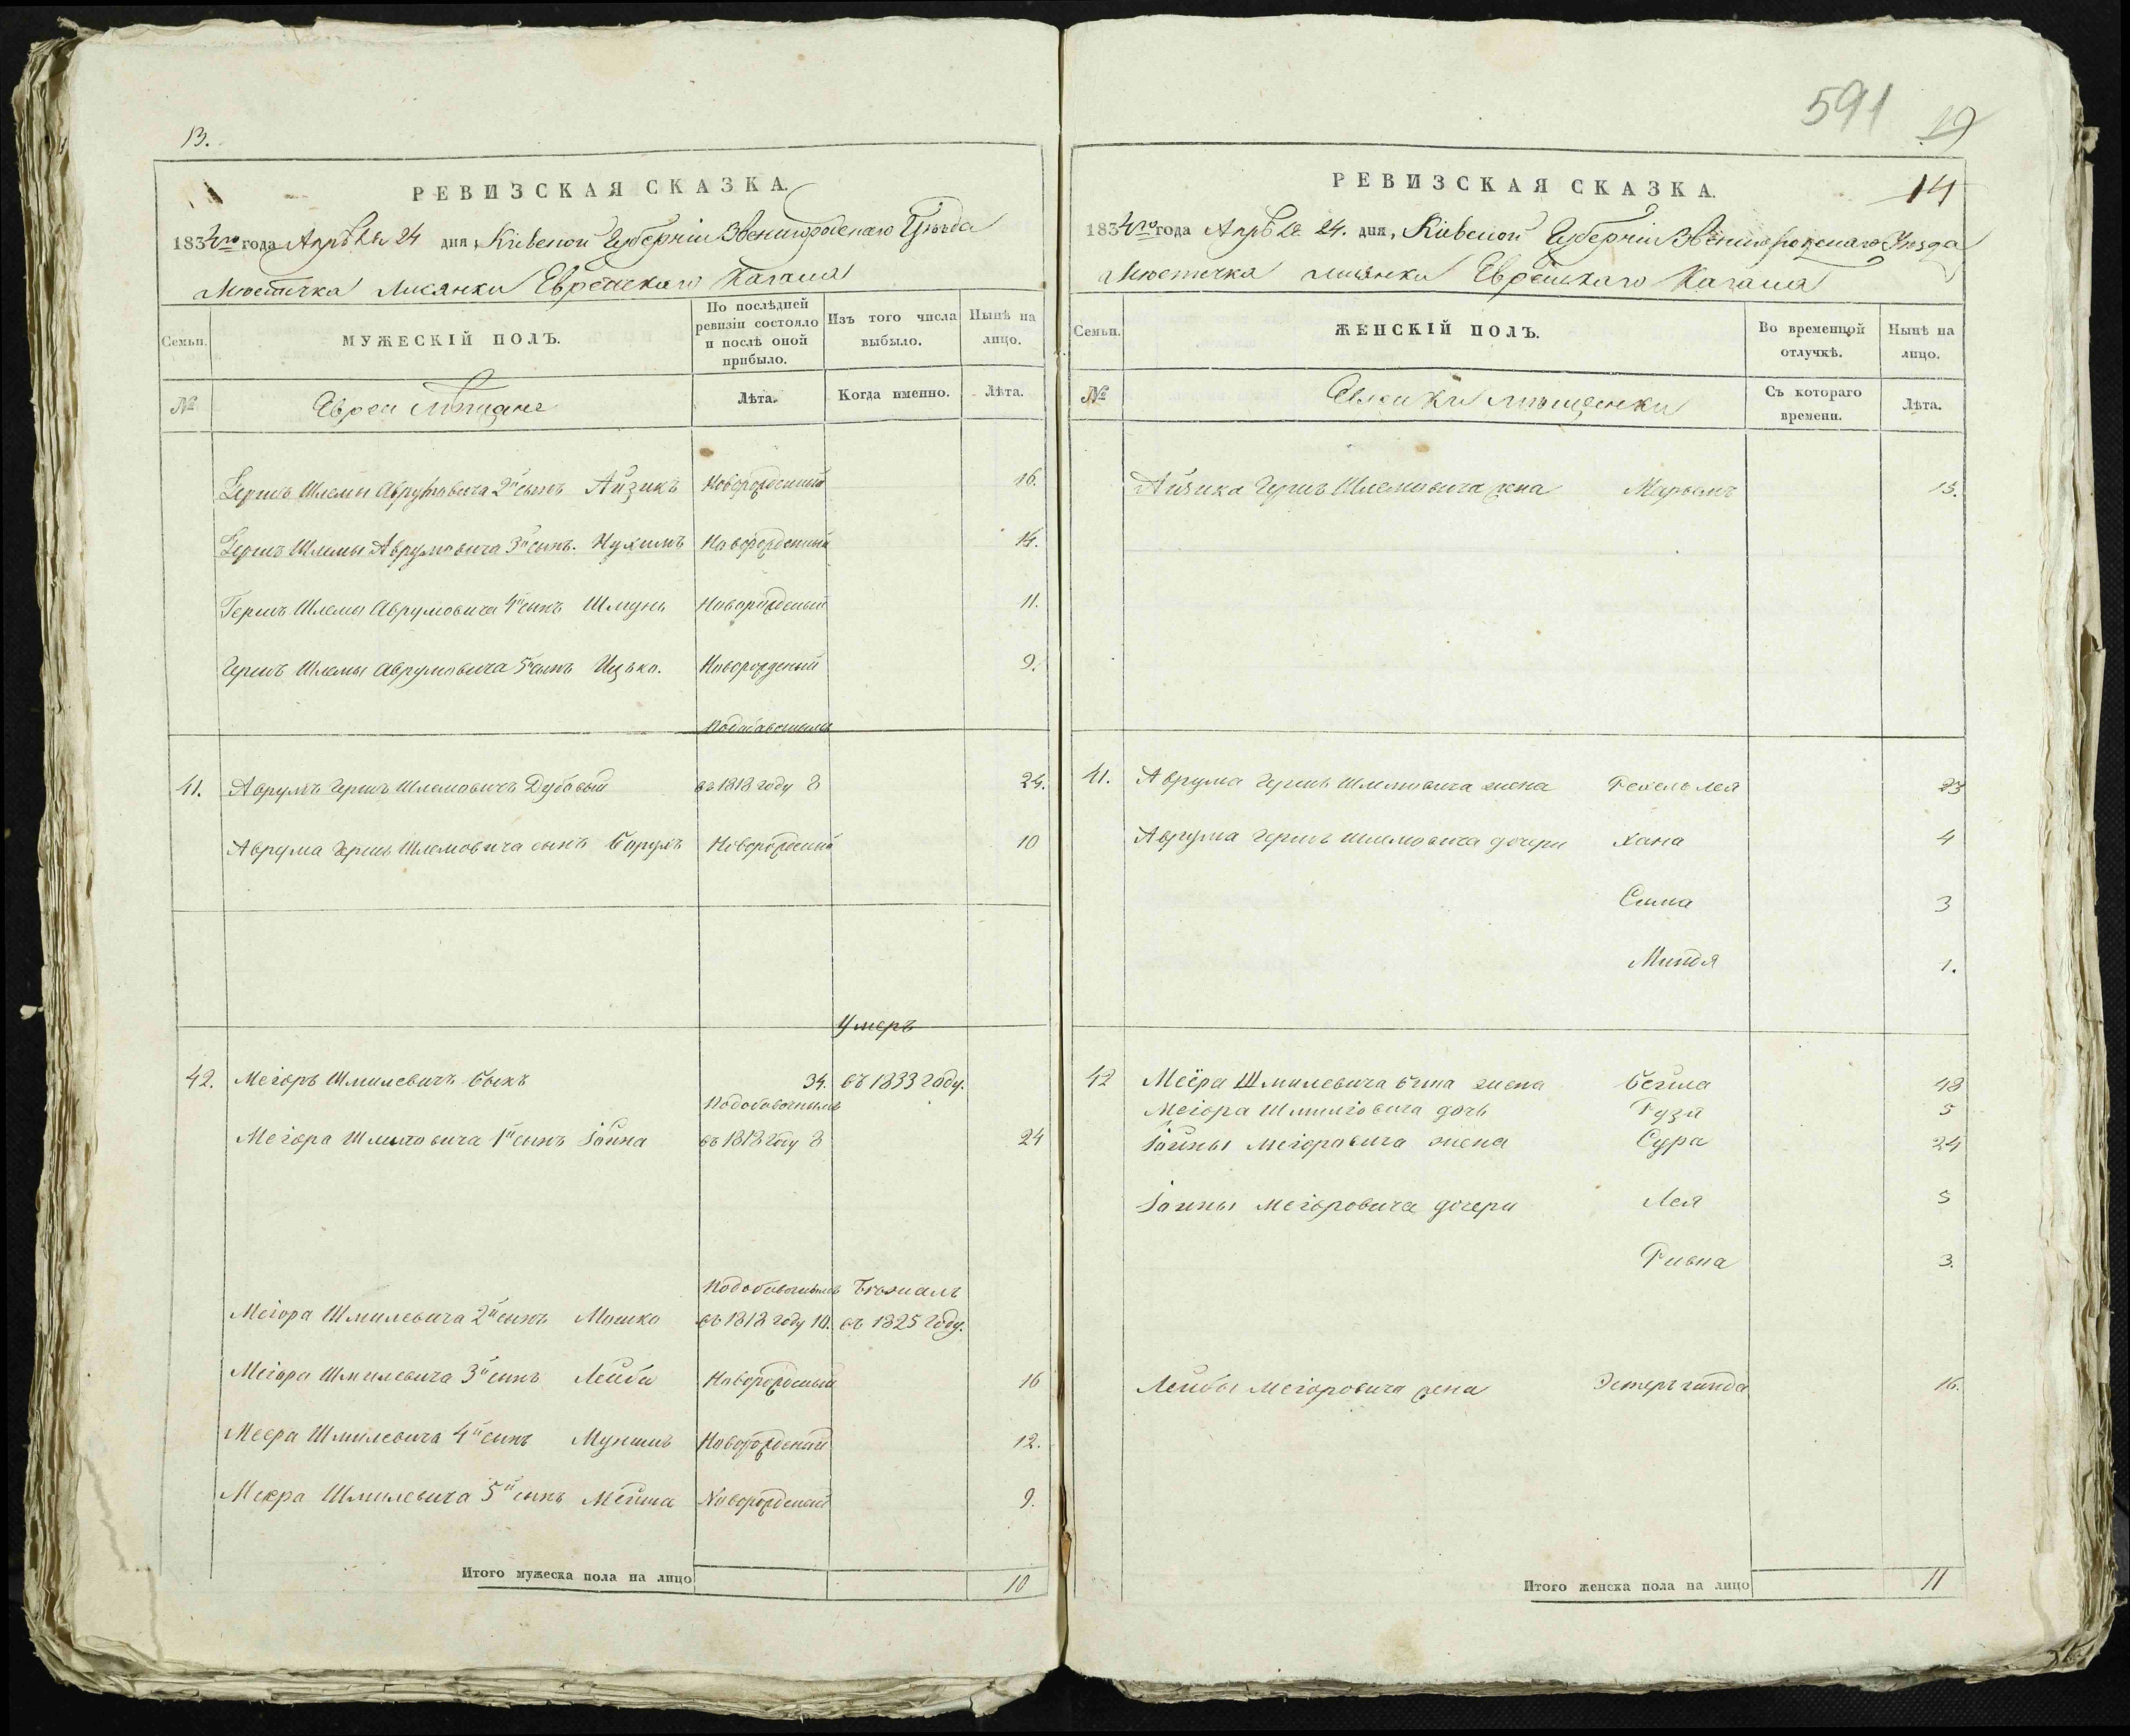 13.
РЕВИЗСКАЯ СКАЗКА.
1834го года Апрѣля 24 дня, Кіевской Губерніи Звенигородскаго Уѣзда
Мѣстечка Лисянки Еврейскаго Кагала
Семьи.
МУЖЕСКІЙ ПОЛЪ.
По послѣдней ревизіи состояло и послѣ оной прибыло.
Изъ того числа выбыло.
Нынѣ на лицо.
№
Евреи Мѣщане
Лѣта.
Когда именно.
Лѣта.
Герша Шлемы Аврумовича 2й сынъ Айзикъ Новорожденный 16.
Герша Шлемы Аврумовича 3й сынъ. Нухимъ Новорожденный 14.
Гершъ Шлемы Аврумовича 4й сынъ Шмунь Новорожденый 11.
Гершъ Шлемы Аврумовича 5й сынъ Ицько. Новорожденый 9.
Подобавочнымъ
41. Аврумъ Гершъ Шлемовичъ Дубовый въ 1818 году 8 24.
Аврума Гершъ Шлемовича сынъ Сорулъ Новорожденый 10
Умеръ
42. Меіоръ Шмилевичъ Быкъ 34. въ 1833 году.
Подобавочнымъ
Меіора Шмилевича 1й сынъ Іойна въ 1818 году 8 24
Подобавочнымъ Бѣжалъ
Меіора Шмилевича 2й сынъ Мошко въ 1818 году 10. въ 1825 году.
Меіора Шмилевича 3й сынъ Лейба Новорожденый 16
Меера Шмилевича 4й сынъ Муншиъ Новорожденый 12.
Меера Шмилевича 5й сынъ Мейша Новорожденый 9.
Итого мужеска пола на лицо 10
591
19
14
РЕВИЗСКАЯ СКАЗКА.
1834го года Апрѣля 24. дня, Кіевской Губерніи Звенигородскаго Уѣзда
Мѣстечка Лисянки Еврейскаго Кагала
Семьи.
ЖЕНСКІЙ ПОЛЪ.
Во временной отлучкѣ.
Нынѣ на лицо.
№
Еврейки мѣщанки
Съ котораго времени.
Лѣта.
Айзика Гершъ Шлемовича жена Марьемъ 15.
41. Аврума Гершъ Шлемовича жена Рехель Лея 23
Аврума Гершъ Шлемовича дочери Хана 4
Сима 3
Миндя 1.
42 Меёра Шмилевича Быка жена Бейла 48
Меіора Шмилевича дочь Рузя 5
Іойны Меіоровича жена Сура 24
Іойны Меіоровича дочери Лея 5
Ривка 3.
Лейбы Меіоровича жена Эстеръ гинда 16.
Итого женска пола на лицо 11